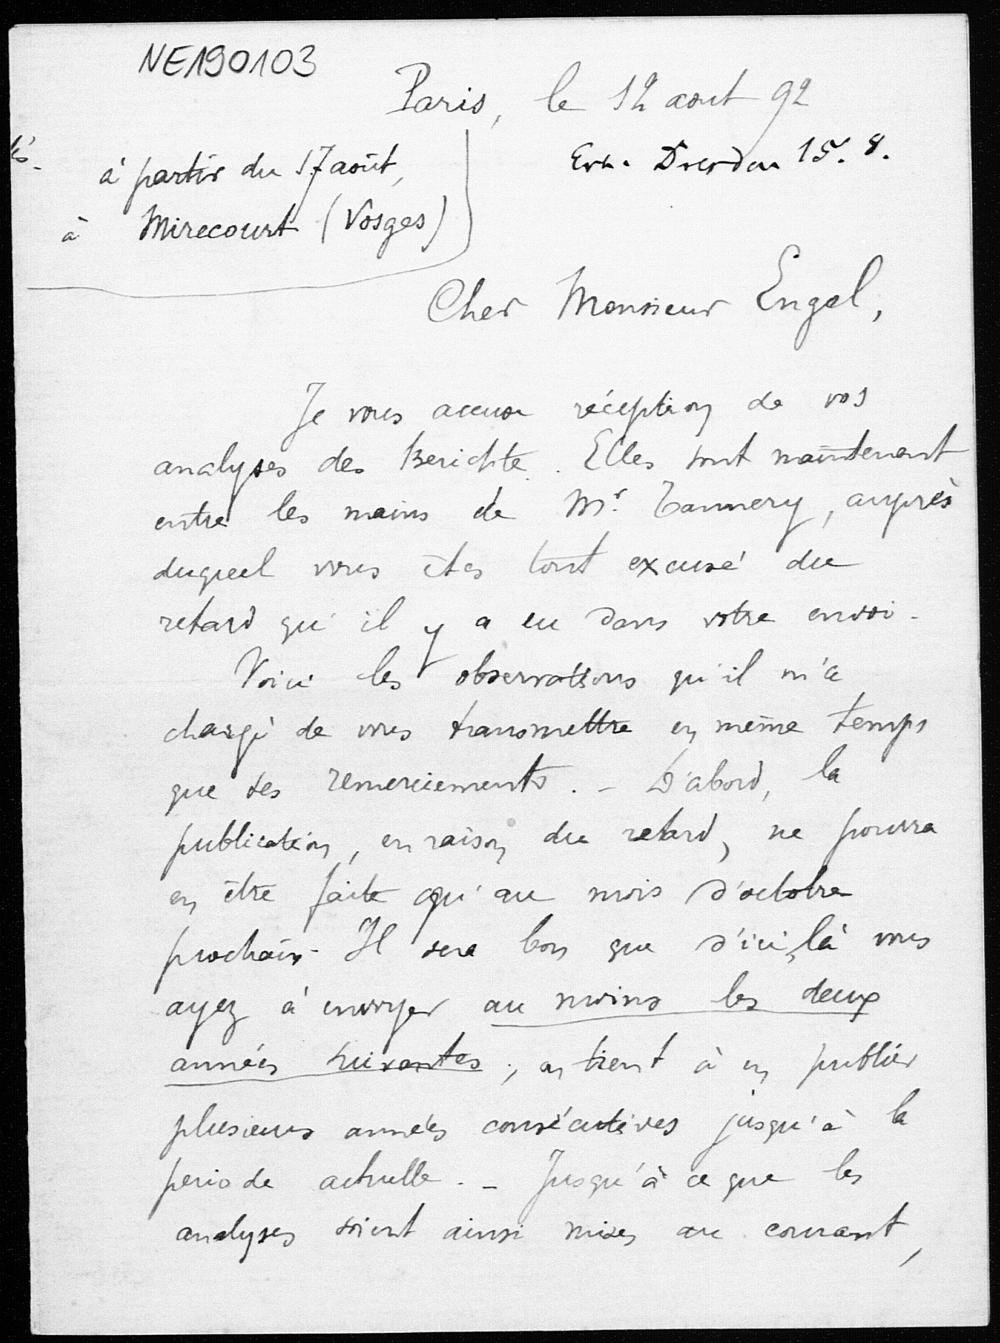 NE190103
Paris, le 12 aout 92
Erh. Dresden 15. 8.
à partir du 17 août,
à Mirecourt (Vosges)
Cher Monsieur Engel,
Je vous accuse réception de vos
analyses des Berichte. Elles sont maintenant
entre les mains de Mr. Tannery, auprès
duquel vous êtes tout excusé du
retard qu'il y a eu dans votre envoi.
Voici les observations qu'il m'a
chargé de vous transmettre en même temps
que ses remerciements. – D'abord, la
publication, en raison du retard, ne pourra
en être faite qu'au mois d'octobre
prochain. Il sera bon que d'ici là vous
ayez à envoyer au moins les deux
années suivantes; on tient à en publier
plusieurs années consécutives jusqu'à la
periode actuelle. – Jusqu'à ce que les
analyses soient ainsi mises au courant,